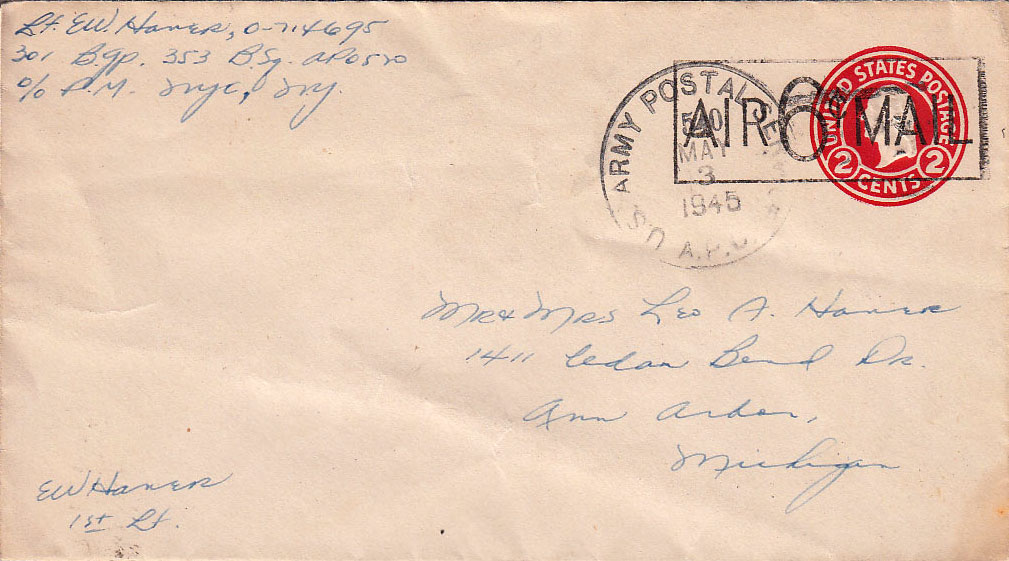 Lt. EW. Haner, O-714695
301 B.gp. 353 B.Sq. APO520
c/o P.M. Nyc, Ny.
U.S. ARMY POSTAL SERVICE
AIR 6¢ MAIL
MAY
3
1945
A.P.O.
UNITED STATES POSTAGE
2 CENTS 2
Mr & Mrs Leo A. Haner
1411 Cedar Bend Dr.
Ann Arbor,
Michigan
EW Haner
1st Lt.